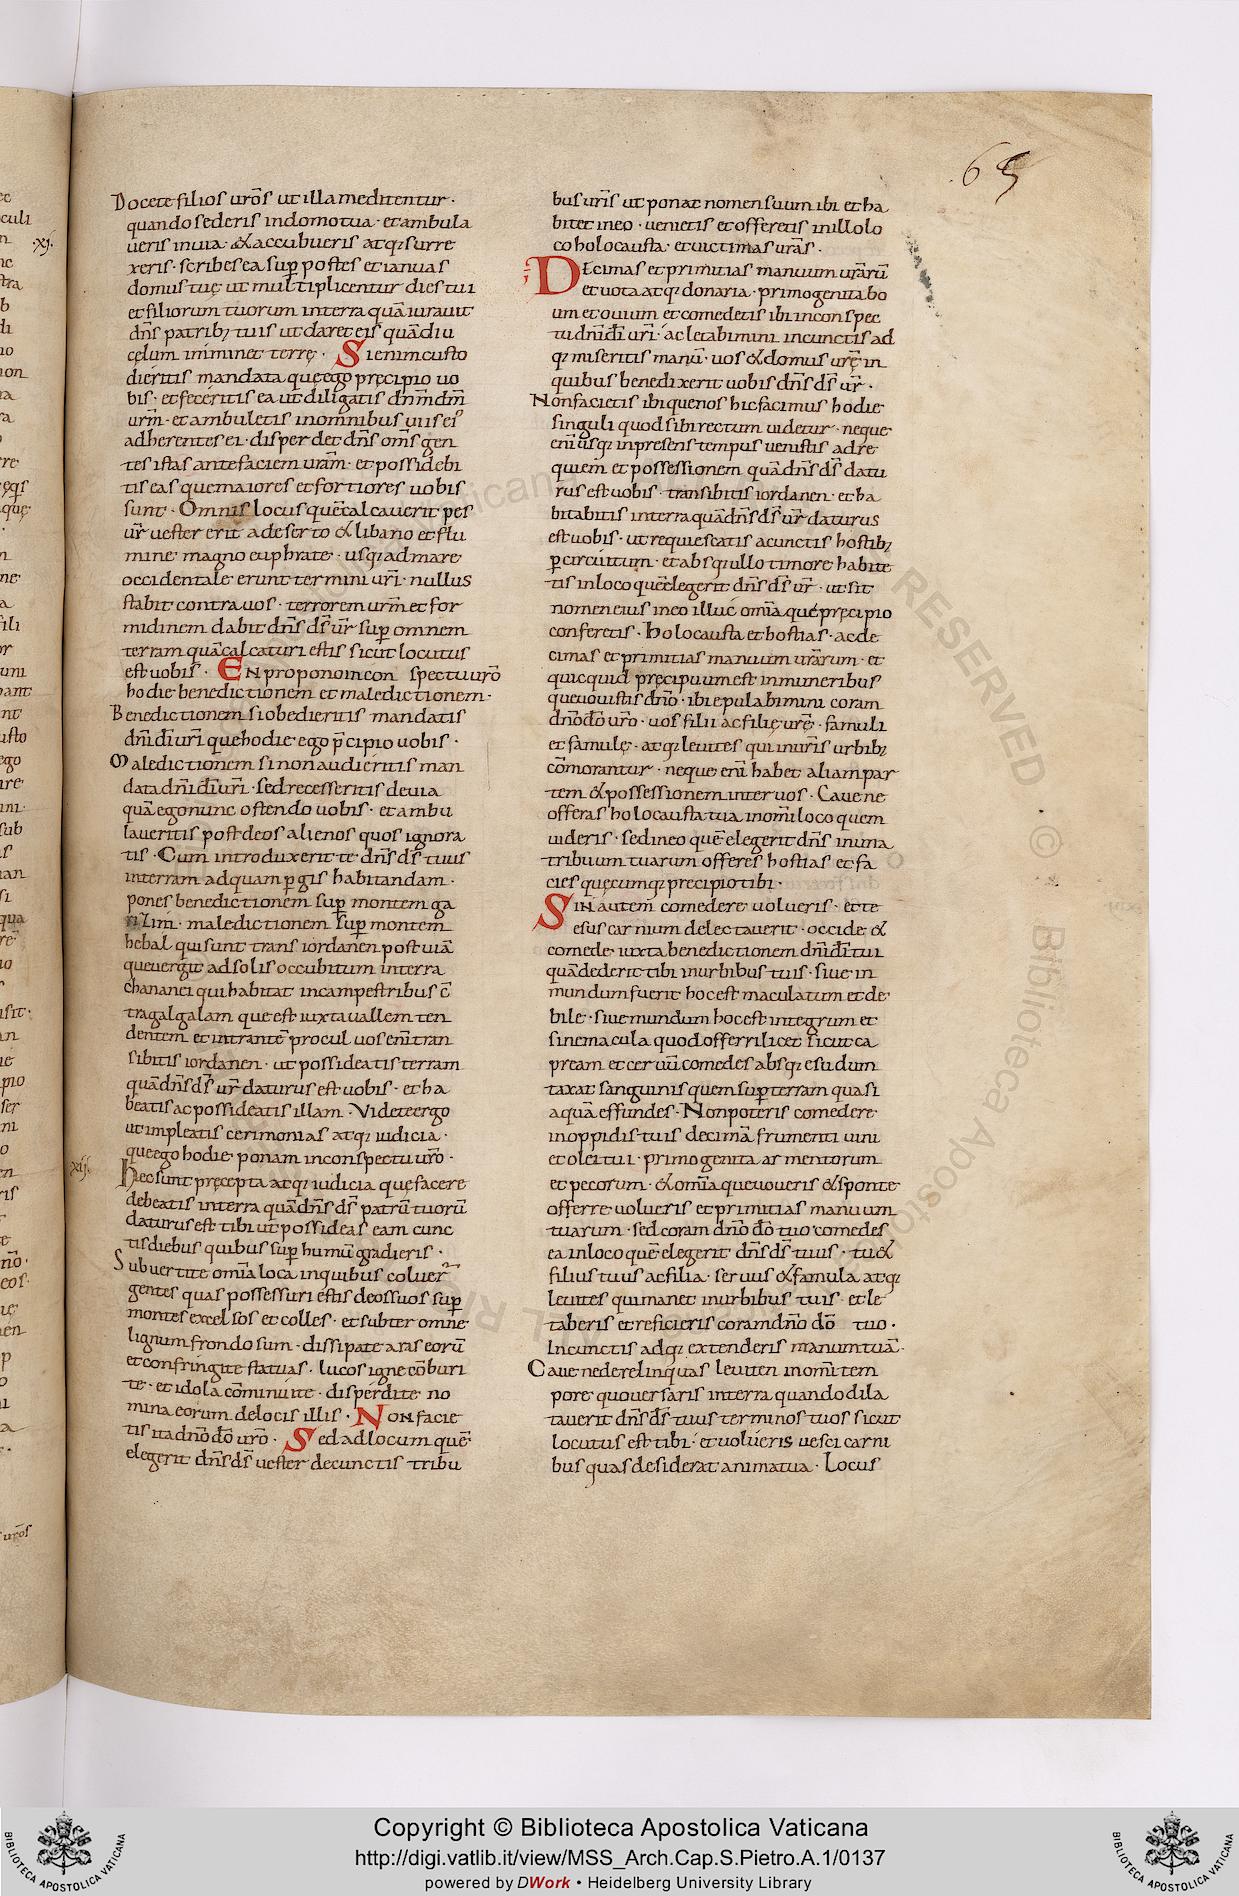 65
Docete filios uros ut illa meditentur ·
quando sederis in domo tua · et ambula
ueris in uia · & accubueris atq; surre
xeris · scribes ea sup postes et ianuas
domus tuę ut multiplicentur dies tui
et filiorum tuorum in terra quā iurauit
dns patrib; tuis ut daret eis quādiu
cęlum inminet terrę · Si enim custo
dieritis mandata que ego pręcipio uo
bis · et feceritis ea ut diligatis dnm dm
urm · et ambuletis in omnibus uiis ei'
adherentes ei · disperdet dns oms gen
tes istas ante faciem uram · et possidebi
tis eas que maiores et fortiores uobis
sunt · Omnis locus quē calcauerit pes
ur uester erit a deserto & libano et flu
mine magno euphrate · usq; ad mare
occidentale erunt termini uri · nullus
stabit contra uos · terrorem urm et for
midinem dabit dns ds ur sup omnem
terram quā calcaturi estis sicut locutus
est uobis · En propono in con spectu uro
hodie benedictionem et maledictionem ·
Benedictionem si obedieritis mandatis
dni di uri que hodie ego pcipio uobis ·
Maledictionem si non audieritis man
data dni di uri · sed recesseritis de uia
quā ego nunc ostendo uobis · et ambu
laueritis post deos alienos quos ignora
tis · Cum introduxerit te dns ds tuus
in terram ad quam pgis habitandam ·
pones benedictionem sup montem ga
rizim · maledictionem sup montem
hebal qui sunt trans iordanen post uiā
que uergit ad solis occubitum in terra
chananei qui habitat in campestribus c̄
tra galgalam que est iuxta uallem ten
dentem et intrantē procul uos eni tran
sibitis iordanen · ut possideatis terram
quā dns ds ur daturus est uobis · et ha
beatis ac possideatis illam · Videte ergo
ut impleatis cerimonias atq; iudicia ·
que ego hodie ponam in conspectu uro ·
xij.
Hec sunt pręcepta atq; iudicia que facere
debeatis in terra quā dns ds patrū tuorū
daturus est tibi ut possideas eam cunc
tis diebus quibus sup humū gradieris ·
Subuertite omia loca in quibus coluer
gentes quas possessuri estis deos suos sup
montes excelsos et colles · et subter omne
lignum frondosum · dissipate aras eorū
et confringite statuas · lucos igne cōburi
te · et idola cōminuite · disperdite no
mina eorum de locis illis · Non facie
tis ita dno do uro · Sed ad locum quē
elegerit dns ds uester de cunctis tribu
bus uris ut ponat nomen suum ibi et ha
bitet in eo · uenietis et offeretis in illo lo
co holocausta · et uictimas uras ·
Decimas et primitias manuum urarū
et uota atq; donaria · primogenita bo
um et ouium et comedetis ibi in conspec
tu dni di uri · ac letabimini in cunctis ad
q; miseritis manū · uos & domus urę in
quibus benedixerit uobis dns ds ur ·
Non facietis ibi que nos hic facimus hodie
singuli quod sibi rectum uidetur · neque
eni usq; in presens tempus uenistis ad re
quiem et possessionem quā dns ds datu
rus est uobis · transibitis iordanen · et ha
bitabitis in terra quā dns ds ur daturus
est uobis · ut requiescatis a cunctis hostib;
p circuitum · et absq; ullo timore habite
tis in loco quē elegerit dns ds ur · ut sit
nomen eius in eo illuc omia que pręcipio
conferetis · Holocausta et hostias · ac de
cimas et primitias manuum urarum · et
quicquid pręcipuum est in muneribus
que uouistis dno · ibi epulabimini coram
dno do uro · uos filii ac filię urę · famuli
et famulę · atq; leuites qui in uris urbib;
cōmorantur · neque eni habet aliam par
tem & possessionem inter uos · Caue ne
offeras holocausta tua in omi loco quem
uideris · sed in eo quē elegerit dns in una
tribuum tuarum offeres hostias et fa
cies quęcumq; precipio tibi ·
Sin autem comedere uolueris · et te
esus carnium delectauerit · occide &
comede iuxta benedictionem dni di tui
quā dederit tibi in urbibus tuis · siue in
mundum fuerit hoc est maculatum et de
bile · siue mundum hoc est integrum et
sine macula quod offerri licet sicut ca
pream et ceruū comedes absq; esu dum
taxat sanguinis quem sup terram quasi
aquā effundes · Non poteris comedere
in oppidis tuis decimā frumenti uini
et olei tui · primogenita armentorum
et pecorum · & omia que uoueris & sponte
offerre uolueris et primitias manuum
tuarum · sed coram dno do tuo comedes
ea in loco quē elegerit dns ds tuus · tu &
filius tuus ac filia · seruus & famula atq;
leuites qui manet in urbibus tuis · et le
taberis et reficieris coram dno do tuo ·
In cunctis ad q; extenderis manum tuā ·
Caue ne derelinquas leuiten in omi tem
pore quo uersaris in terra quando dila
tauerit dns ds tuus terminos tuos sicut
locutus est tibi · et uolueris uesci carni
bus quas desiderat anima tua · Locus
Copyright © Biblioteca Apostolica Vaticana
http://digi.vatlib.it/view/MSS_Arch.Cap.S.Pietro.A.1/0137
powered by DWork • Heidelberg University Library
BIBLIOTECA APOSTOLICA VATICANA
BIBLIOTECA APOSTOLICA VATICANA